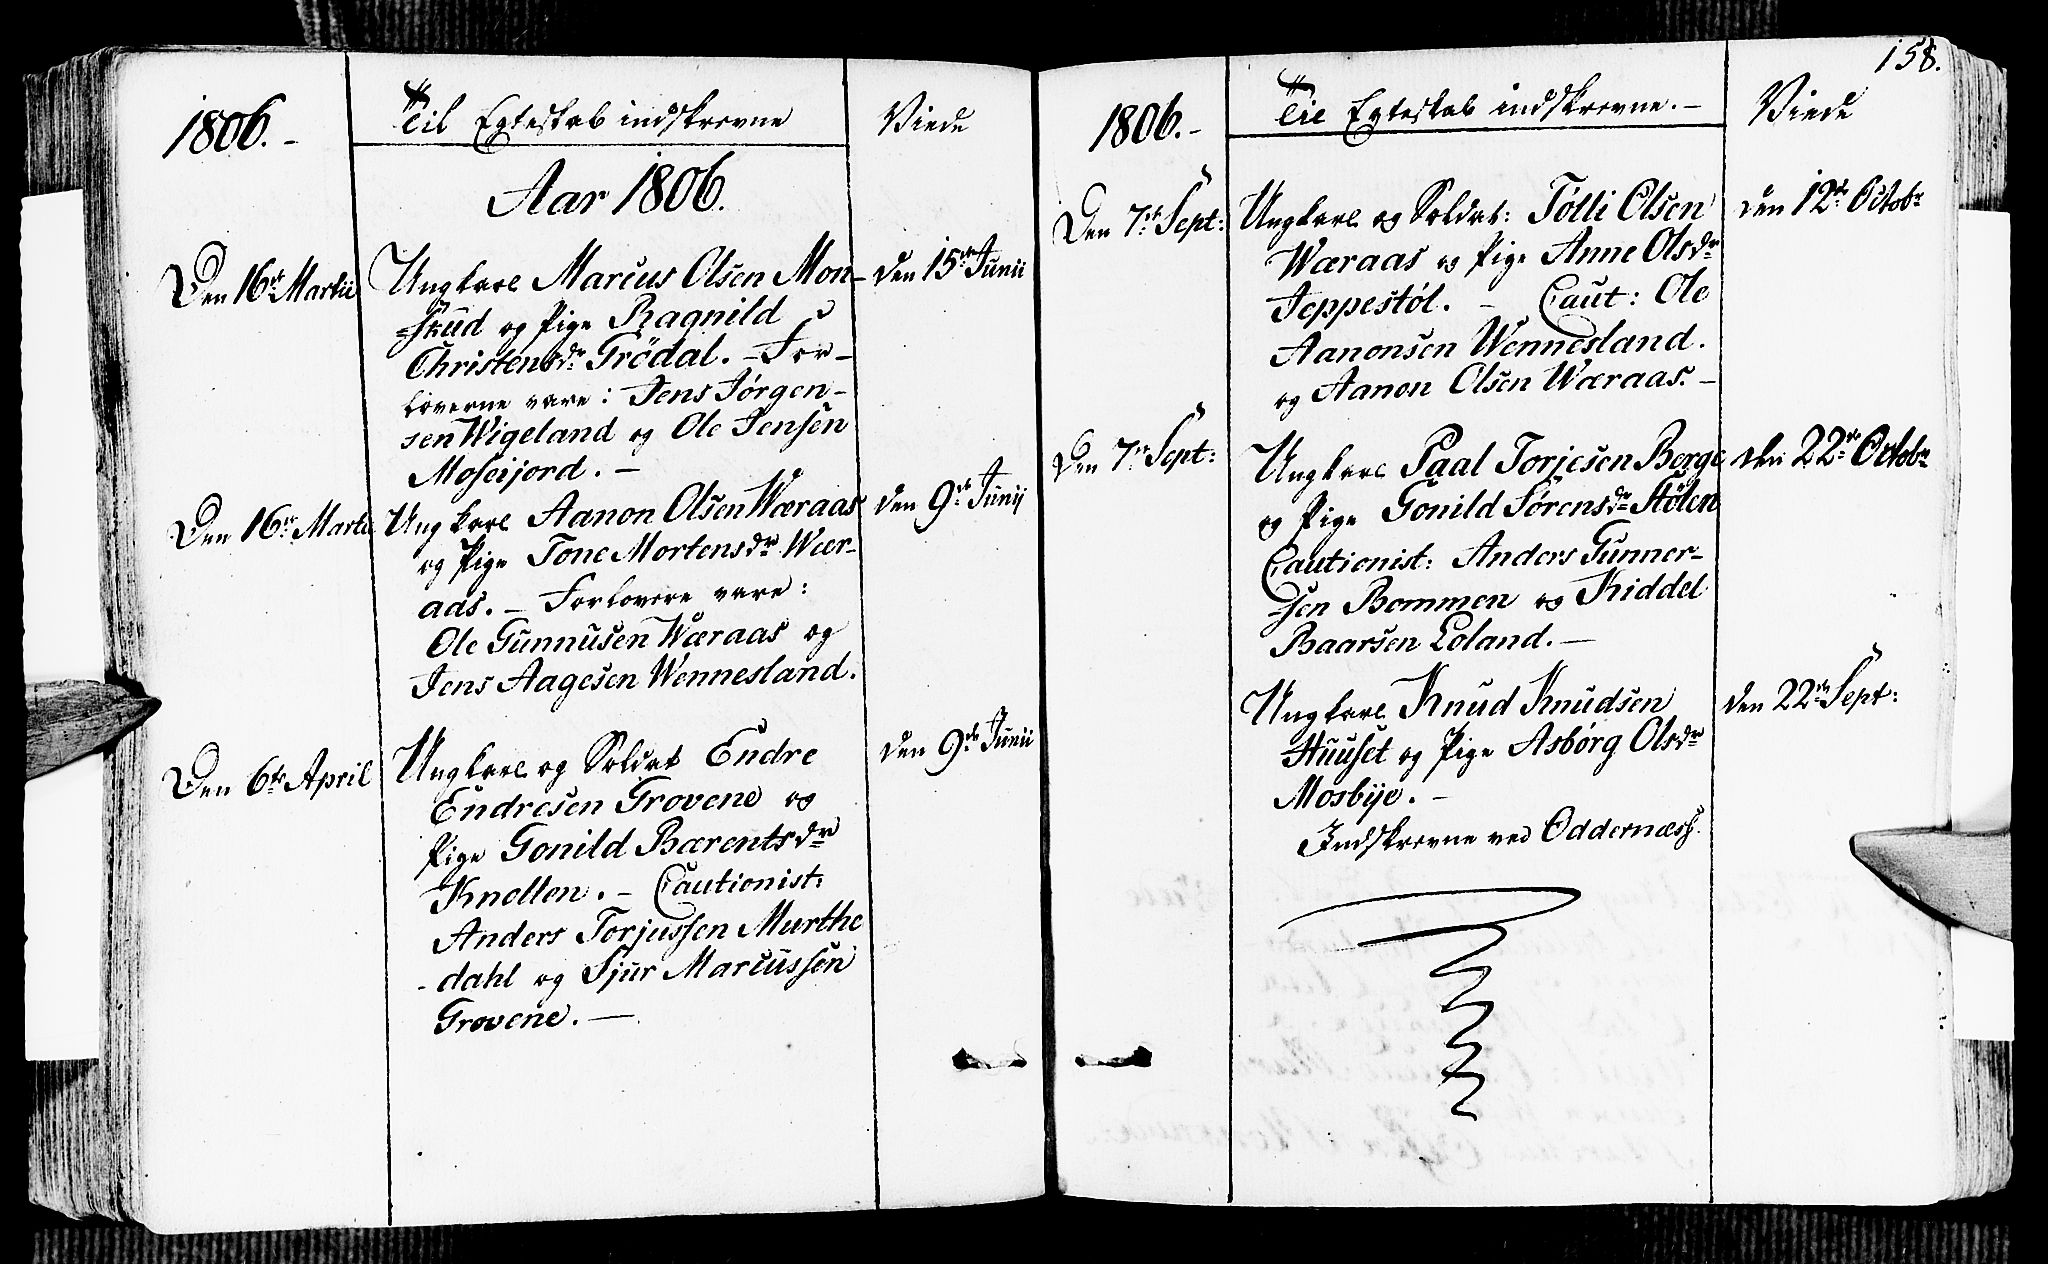 1806. –
Til Egteskab indskrevne
Viede
Aar 1806.
Den 16de Martii
Ungkarl Marcus Olsen Mon-
den 15de Junii
-skud og Pige Ragnild
Christensdr Trödal. – For-
loverne vare: Jens Jørgen-
sen Wigeland og Ole Jensen
Moseijord. –
Den 16de Martii
Ungkarl Aanon Olsen Wæraas
den 9de Junij
og Pige Tone Mortensdr Wær-
aas. – Forlovere vare:
Ole Gunnusen Wæraas og
Jens Aagesen Wennesland.
Den 6te April
Ungkarl og Soldat Endre
den 9de Junii
Endresen Grovene og
Pige Gonild Bærentsdr
Knollen. – Cautionist:
Anders Torjussen Murthe
-dahl og Sjur Marcussen
Grovene. –
158.
1806. –
Til Egteskab indskrevne. –
Viede
Den 7de Sept:
Ungkarl og Soldat: Tølli Olsen
den 12te Octobr
Wæraas og Pige Anne Olsdr
Jeppestøl. – Caut: Ole
Aanonsen Wennesland.
og Aanon Olsen Wæraas. –
Den 7de Sept:
Ungkarl Paal Torjesen Berge
den 22de Octobr
og Pige Gonild Sørensdr Støle
Cautionist: Anders Gunner-
-sen Bommen og Kiddel
Baarsen Loland. –
Ungkarl Knud Knudsen
den 22de Sept:
Huuset og Pige Asbørg Olsdr
Mosbÿe. –
Indskrevne ved Oddernæss.